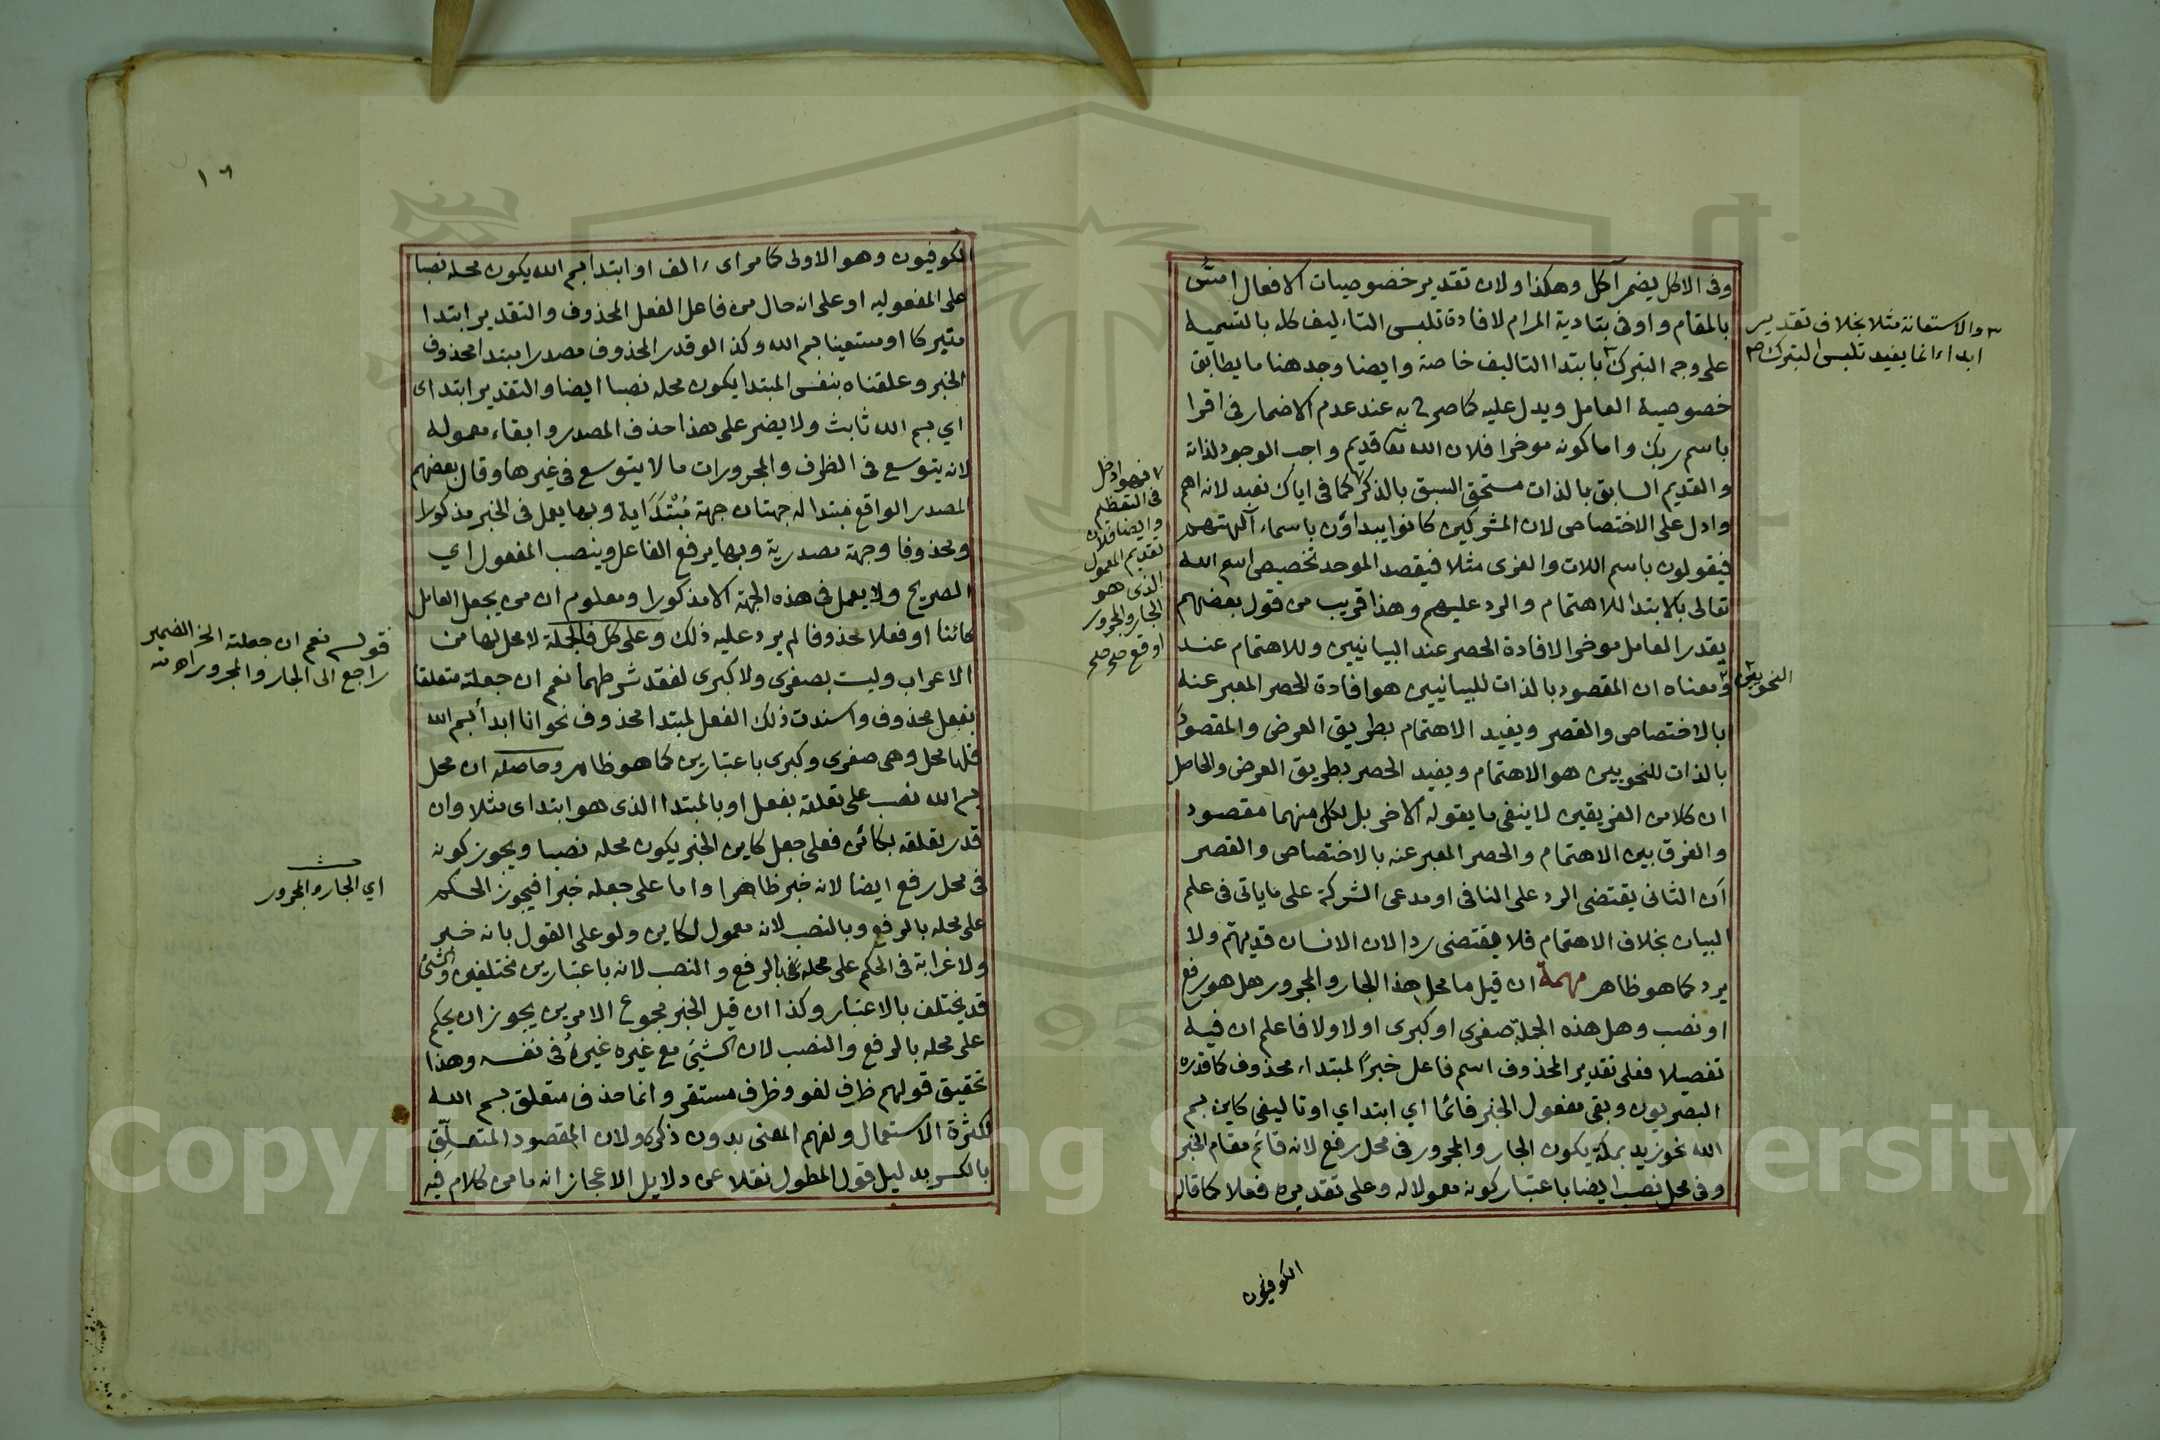 وفى الاكل يضمر آكل وهكذا ولان تقدير خصوصيات الافعال امتن
بالمقام واوفى بتادية المرام لافادة تلبس التاءليف كله بالتسمية
على وجه التبرك ٣ بابتدا التاليف خاصة وايضا وجد هنا ما يطابق
خصوصية العامل ويدل عليه كما صرح به عند عدم الاضمار فى اقرا
باسم ربك واما كونه موخرا فلان الله تعا قديم واجب الوجود لذاته
والقديم السابق بالذات مستحق السبق بالذكر ٧ كما فى اياك نعبد لانه اهم
وادل على الاختصاص لان المشركين كانوا يبداؤن باسماء آلهتهم
فيقولون باسم اللات والعزى مثلا فيقصد الموحد تخصيص اسم الله
تعالى بالابتدا للاهتمام والرد عليهم وهذا قريب من قول بعضهم
يقدر العامل موخرا لافادة الحصر عند البيانيين وللاهتمام عند
ومعناه ان المقصود بالذات للبيانيين هو افادة الحصر المعبر عنه
بالاختصاص والقصر ويفيد الاهتمام بطريق العرض والمقصود
بالذات للنحويين هو الاهتمام ويفيد الحصر بطريق العرض والحاصل
ان كلا من الفريقين لا ينفى ما يقوله الاخر بل لكل منهما مقصود
والفرق بين الاهتمام والحصر المعبر عنه بالاختصاص والقصر
ان الثانى يقتضى الرد على النافى او مدعى الشركة على ما ياتى فى علم
البيان بخلاف الاهتمام فلا يقتضى ردا لان الانسان قد يهتم ولا
يرد كما هو ظاهر مهمة ان قيل ما محل هذا الجار والمجرور هل هو رفع
او نصب وهل هذه الجملة صغرى او كبرى اولا ولا فاعلم ان فيه
تفصيلا فعلى تقدير المحذوف اسم فاعل خبرًا لمبتداء محذوف كما قدره
البصريون وبقى مفعول الخبر قائما اي ابتداي او تاليفي كاين بسم
الله نحو زيد بمكة يكون الجار والمجرور فى محل رفع لانه قائم مقام الخبر
وفى محل نصب ايضا باعتبار كونه معمولا له وعلى تقديره فعلا كما قال
الكوفيون
٣ والاستعانة مثلا بخلاف تقدير
ابداء انما يفيد تلبس التبرك صح
النحويين
٧ فهو ادخل
فى التعظيم
وايضا فلان
تقديم المعمول
الذى هو
الجار والمجرور
اوقع صح صح
١٦
الكوفيون وهو الاولى كما مر اى ءالف او ابتدا بسم الله يكون محله نصبا
على المفعوليه او على انه حال من فاعل الفعل المحذوف والتقدير ابتدا
متبركا او مستعينا بسم الله وكذا لو قدر المحذوف مصدرا مبتدا محذوف
الخبر وعلقناه بنفس المبتدا يكون محله نصبا ايضا والتقدير ابتداى
اي بسم الله ثابت ولا يضر على هذا حذف المصدر وابقاء معموله
لانه يتوسع فى الظرف والمجرورات ما لا يتوسع فى غيرها وقال بعضهم
المصدر الواقع مبتدا له جهتان جهة مُبْتَدَاية وبها يعمل فى الخبر مذكورا
ومحذوفا وجهة مصدرية وبها يرفع الفاعل وينصب المفعول اي
الصريح ولا يعمل فى هذه الجهة الا مذكورا ومعلوم ان من يجعل العامل
كائنا او فعلا محذوفا لم يرد عليه ذلك وعلى كل فالجملة لا محل لها من
الاعراب وليت بصغرى ولا كبرى لفقد شرطهما نعم ان جعلته متعلقا
بفعل محذوف واسندت ذلك الفعل لمبتدا محذوف نحو انا ابدأ بسم الله
فلها محل وهى صغرى وكبرى باعتبارين كما هو ظاهر وحاصله ان محل
بسم الله نصب على تعلقه بفعل او بالمبتدا الذى هو ابتداى مثلا وان
قدر تعلقه بكائن فعلى جعل كاين الخبر يكون محله نصبا ويجوز كونه
فى محل رفع ايضا لانه خبر ظاهرا واما على جعله خبرا فيجوز الحكم
على محله بالرفع وبالنصب لانه معمول لكاين ولو على القول بانه خبر
ولا غرابة فى الحكم على محله بالرفع والنصب لانه باعتبارين مختلفين والشئ
قد يختلف بالاعتبار وكذا ان قيل الخبر مجموع الامرين يجوز ان يحكم
على محله بالرفع والنصب لان الشيئ مع غيره غيرُهُ فى نفسه وهذا
تحقيق قولهم ظرف لغو وظرف مستقر وانما حذف متعلق بسم الله
لكثرة الاستعمال ولفهم المعنى بدون ذكره ولان المقصود المتعلِّق
بالكسر بدليل قول المطول نقلا عن دلايل الاعجاز انه ما من كلام فيه
قوله نعم ان جعلته الخ الضمير
راجع الى الجار والمجرور اه منه
اي الجار والمجرور
Copyright © King Saud University